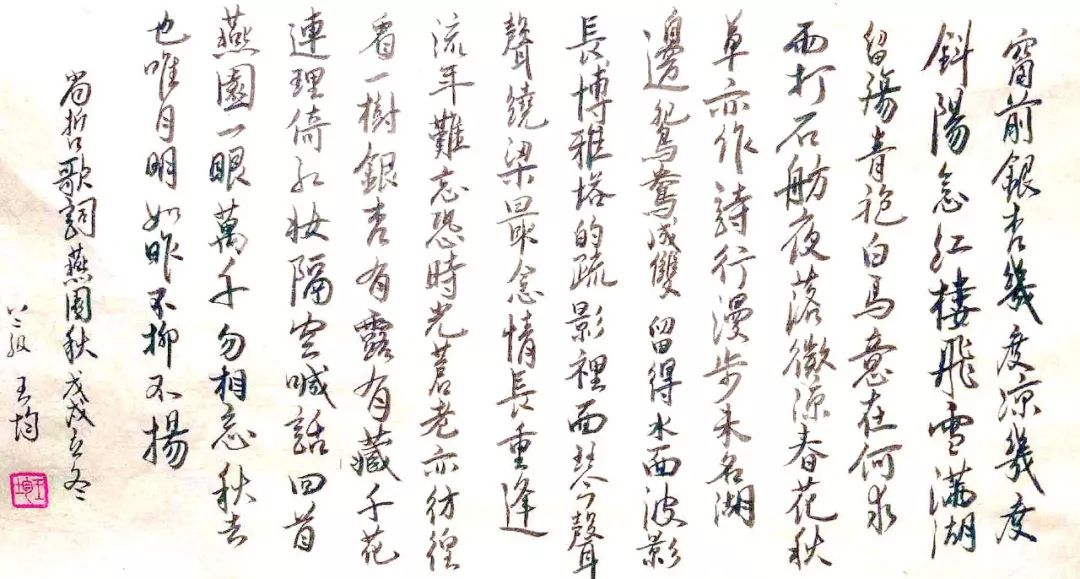 窗前銀杏幾度凉幾度
斜陽念红樓飛雪滿湖
留殤青袍白馬意在何求
雨打石舫夜落微凉春花秋
草亦作詩行漫步未名湖
邊鴛鴦成雙留得水面波影
長博雅塔的疏影裡面琴聲聲
聲繞梁最念情長重逢
流年難忘恐時光茗老亦彷徨
看一樹銀杏有露有藏千花
連理倚红妝隔空喊話回首
燕園一眼萬千勿相忘秋去
也唯月明如昨不抑不揚
尚哲歌詞燕園秋戊戌立冬
八二級王均